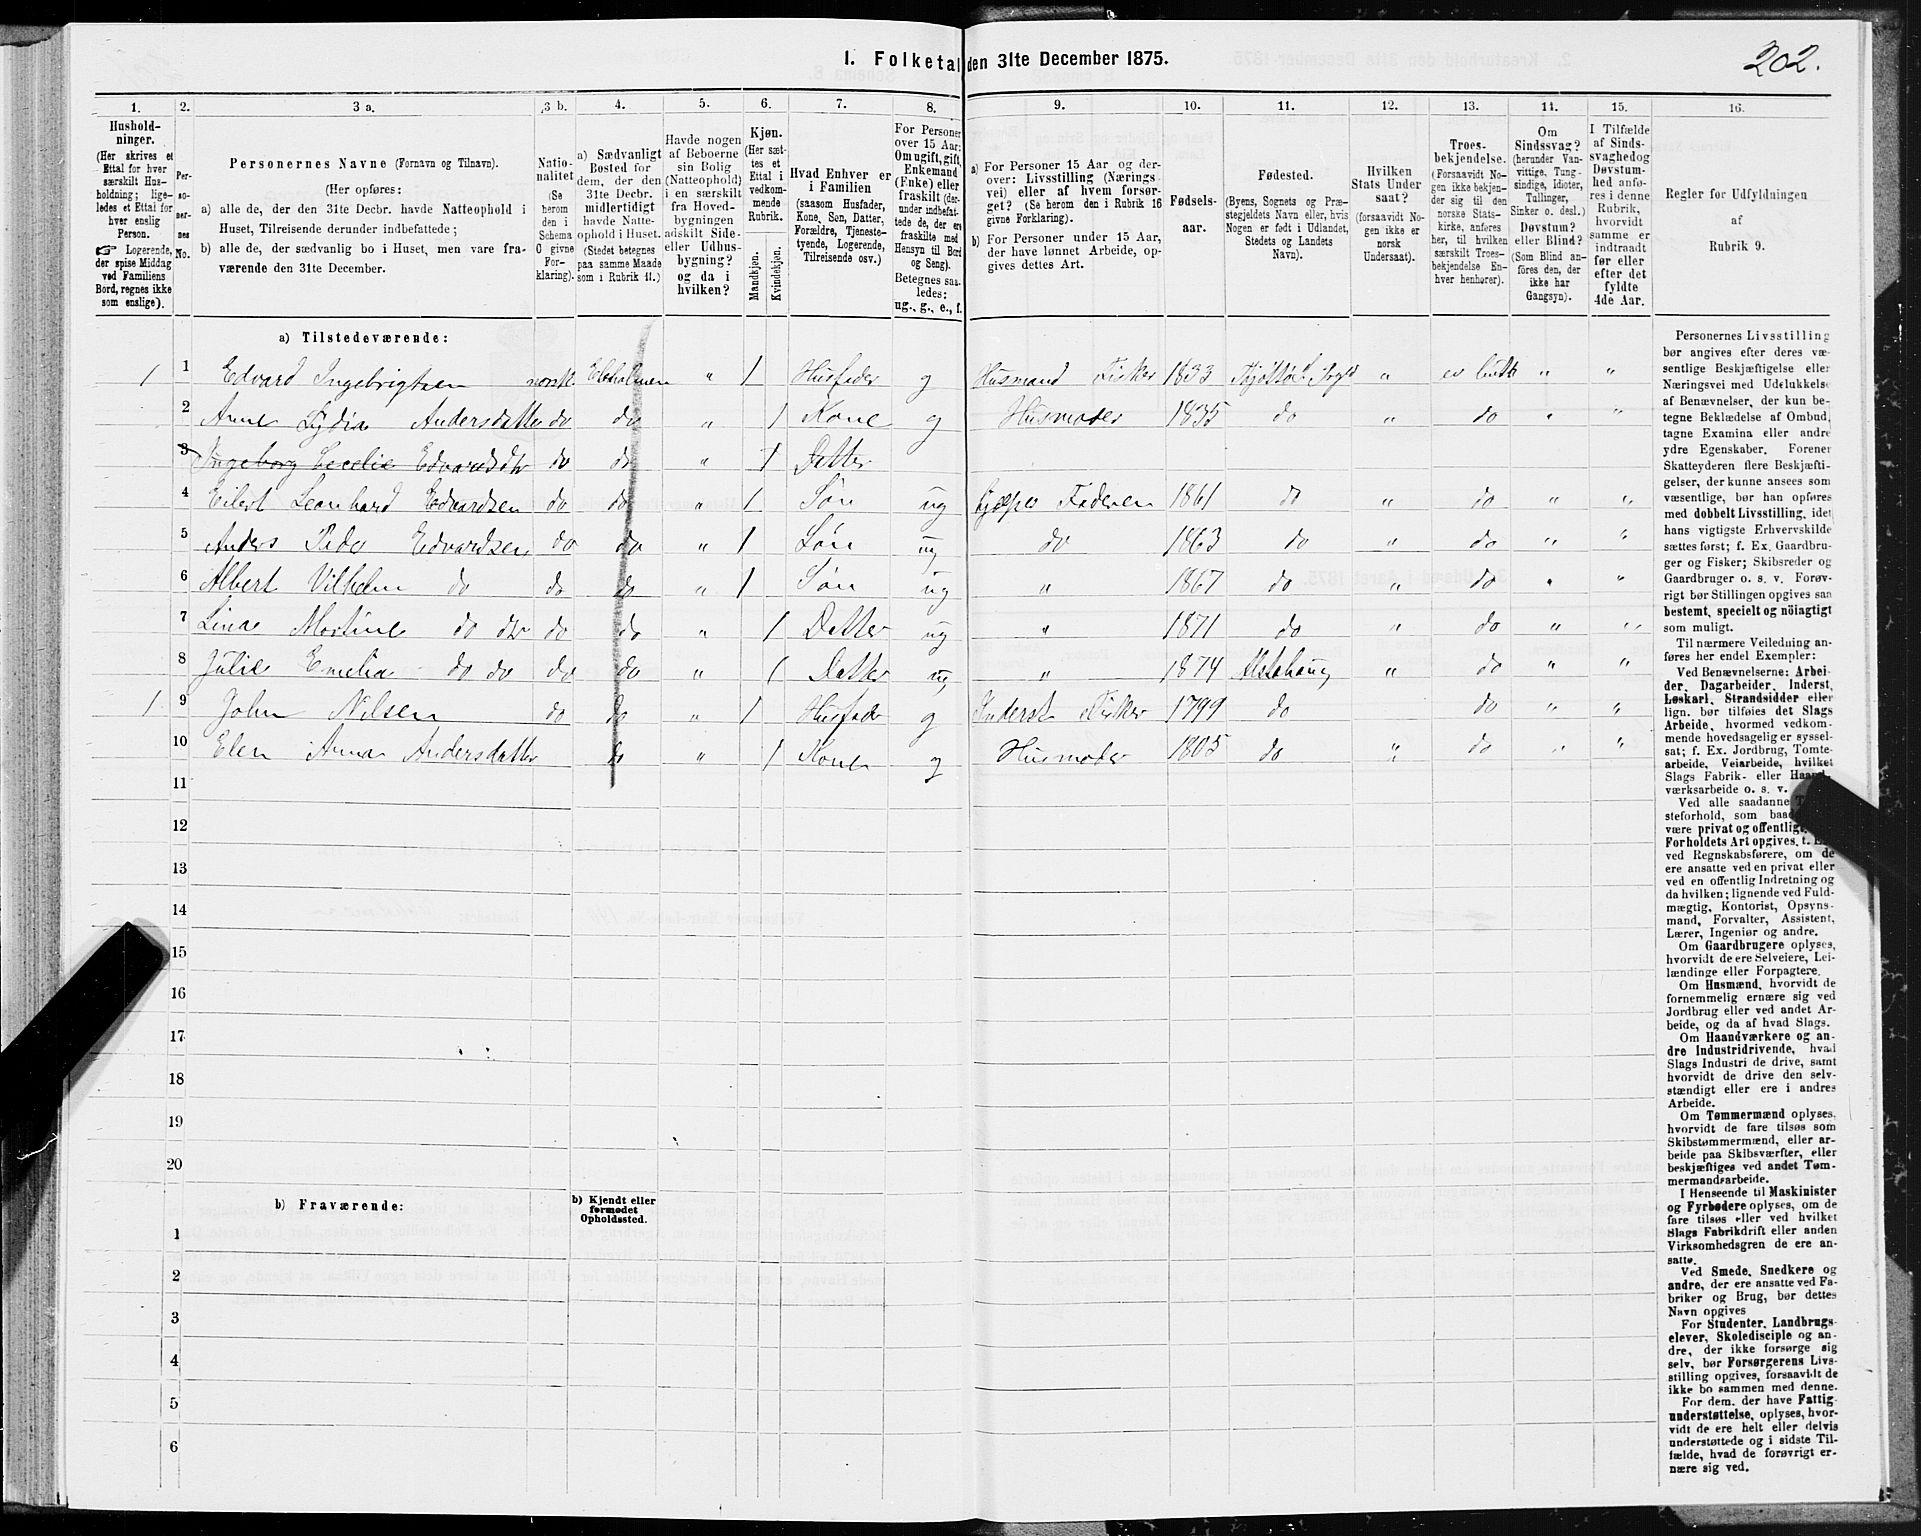 I. Folketal den 31te December 1875.
202.
1. 2. 3 a. 3 b. 4. 5. 6. 7. 8. 9. 10. 11. 12. 13. 14. 15. 16.
Hushold-
ninger.
(Her skrives et
Ettal for hver
særskilt Hus-
holdning; lige-
ledes et Ettal for
hver enslig
Person.
☞ Logerende,
der spise Middag
ved Familiens
Bord, regnes ikke
som enslige).
Per-
so-
ner-
nes
No.
Personernes Navne (Fornavn og Tilnavn).
(Her opføres:
a) alle de, der den 31te Decbr. havde Natteophold i
Huset, Tilreisende derunder indbefattede;
b) alle de, der sædvanlig bo i Huset, men vare fra-
værende den 31te December.
Natio-
nalitet
(Se
herom
den i
Schema
O givne
For-
klaring).
a) Sædvanligt
Bosted for
dem, der den
31te Decbr.
midlertidigt
havde Natte-
ophold i Huset.
(Stedet betegnes
paa samme Maade
som i Rubrik 11.)
Havde nogen
af Beboerne
sin Bolig
(Natteophold)
i en særskilt
fra Hoved-
bygningen
adskilt Side-
eller Udhus-
bygning?
og da i
hvilken?
Kjøn.
(Her sæt-
tes et
Ettal i
vedkom-
mende
Rubrik.
Mandkjøn.
Kvindekjøn.
Hvad Enhver er
i Familien
(saasom Husfader,
Kone, Søn, Datter,
Forældre, Tjeneste-
tyende, Logerende,
Tilreisende osv.)
For Personer
over 15 Aar:
Om ugift, gift,
Enkemand
(Enke) eller
fraskilt (der-
under indbefat-
tede de, der ere
fraskilte med
Hensyn til Bord
og Seng).
Betegnes saa-
ledes:
ug., g., e., f.
a) For Personer 15 Aar og der-
over: Livsstilling (Nærings-
vei) eller af hvem forsør-
get? (Se herom den i Rubrik 16
givne Forklaring).
b) For Personer under 15 Aar,
der have lønnet Arbeide, op-
gives dettes Art.
Fødsels-
aar.
Fødested.
(Byens, Sognets og Præ-
stegjeldets Navn eller, hvis
Nogen er født i Udlandet,
Stedets og Landets
Navn).
Hvilken
Stats Under
saat?
(forsaavidt No-
gen ikke er
norsk
Undersaat).
Troes-
bekjendelse.
(Forsaavidt No-
gen ikke bekjen-
der sig til den
norske Stats-
kirke, anføres
her, til hvilken
særskilt Troes-
bekjendelse En-
hver henhører).
Om
Sindssvag?
(herunder Van-
vittige, Tung-
sindige, Idioter,
Tullinger,
Sinker o. desl.)
Døvstum?
eller Blind?
(Som Blind an-
føres den, der
ikke har
Gangsyn).
I Tilfælde
af Sinds-
svaghed og
Døvstum-
hed anfø-
res i denne
Rubrik,
hvorvidt
samme er
indtraadt
før eller
efter det
fyldte
4de Aar.
Regler for Udfyldningen
af
Rubrik 9.
a) Tilstedeværende:
1 1 Edvard Ingebrigtsen norsk " 1 Husfader g Husmand Fisker 1833 " "
2 Anne Lydia Andersdatter do do " 1 Kone g Husmoder 1835 do " do " "
3 Ingeborg Cecelie Edvardsdtr do do " 1 Datter
4 Eilert Leonhard Edvardsen do do " 1 Søn ug hjælper Faderen 1861 do " do " "
5 Anders Edvardsen do do " 1 Søn ug do 1863 do " do " "
6 Albert Vilhelm do do do " 1 Søn ug " 1867 do " do " "
7 Lina Martine do dtr do do " 1 Datter ug " 1871 do " do " "
8 Julie Emelia do do do do " 1 Datter ug " 1874 Alstahaug " do " "
1 9 John Nilsen do do " 1 Husfader g Inderst Fisker 1799 do do " "
10 Elen Anna Andersdatter do " 1 Kone g Husmoder 1805 do " do " "
11
12
13
14
15
16
17
18
19
20
b) Fraværende:
b) Kjendt eller
formodet
Opholdssted.
1
2
3
4
5
6
Personernes Livsstilling
bør angives efter deres væ-
sentlige Beskjæftigelse eller
Næringsvei med Udelukkelse
af Benævnelser, der kun be-
tegne Beklædelse af Ombud,
tagne Examina eller andre
ydre Egenskaber. Forener
Skatteyderen flere Beskjæfti-
gelser, der kunne ansees som
væsentlige, bør han opføres
med dobbelt Livsstilling, idet
hans vigtigste Erhvervskilde
sættes først; f. Ex. Gaardbru-
ger og Fisker; Skibsreder og
Gaardbruger o. s. v. Forøv-
rigt bør Stillingen opgives saa
bestemt, specielt og nöiagtigt
som muligt.
Til nærmere Veiledning an-
føres her endel Exempler:
Ved Benævnelserne: Arbei-
der, Dagarbeider, Inderst,
Løskarl, Strandsidder eller
lign. bør tilføies det Slags
Arbeide, hvormed vedkom-
mende hovedsagelig er syssel-
sat; f. Ex. Jordbrug, Tomte-
arbeide, Veiarbeide, hvilket
Slags Fabrik- eller Haand-
værksarbeide o. s. v.
Ved alle saadanne
steforhold, som
være privat og offentlige,
Forholdets Art opgives, t. Ex.
ved Regnskabsførere, om de
ere ansatte ved en privat eller
ved en offentlig Indretning og
da hvilken; lignende ved Fuld-
mægtig, Kontorist, Opsyns-
mand, Forvalter, Assistent,
Lærer, Ingeniør og andre.
Om Gaardbrugere oplyses,
hvorvidt de ere Selveiere, Lei-
lændinge eller Forpagtere.
Om Husmænd, hvorvidt de
fornemmelig ernære sig ved
Jordbrug eller ved andet Ar-
beide, og da af hvad Slags.
Om Haandværkere og an-
dre Industridrivende, hvad
Slags Industri de drive, samt
hvorvidt de drive den selv-
stændigt eller ere i andres
Arbeide.
Om Tømmermænd oplyses,
hvorvidt de fare tilsøs som
Skibstømmermænd, eller ar-
beide paa Skibsværfter, eller
beskjæftiges ved andet Tøm-
mermandsarbeide.
I Henseende til Maskinister
og Fyrbødere oplyses, om de
fare tilsøs eller ved hvilket
Slags Fabrikdrift eller anden
Virksomhedsgren de ere an-
satte.
Ved Smede, Snedkere og
andre, der ere ansatte ved Fa-
briker og Brug, bør dettes
Navn opgives
For Studenter, Landbrugs-
elever, Skoledisciple og an-
dre, der ikke forsørge sig
selv, bør Forsørgerens Livs-
stilling opgives, forsaavidt de
ikke bo sammen med denne.
For dem, der have Fattig-
understøttelse, oplyses, hvor-
vidt de ere helt eller delvis
understøttede og i sidste Til-
fælde, hvad de forøvrigt er-
nære sig ved.